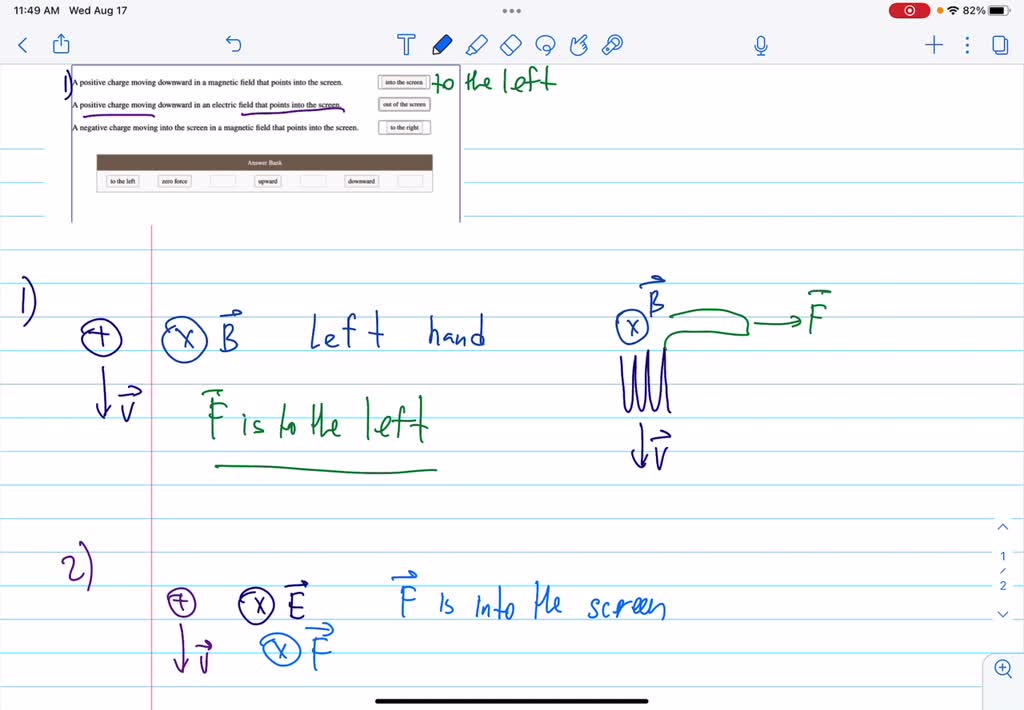 11:49 AM Wed Aug 17
82%
1) A positive charge moving downward in a magnetic field that points into the screen. into the screen to the left
A positive charge moving downward in an electric field that points into the screen. out of the screen
A negative charge moving into the screen in a magnetic field that points into the screen. to the right
Answer Bank
to the left zero force upward downward
1)
+ x B Left hand
V
F is to the left
B
x
F
V
2)
+ x E F is into the screen
V x F
1
/
2